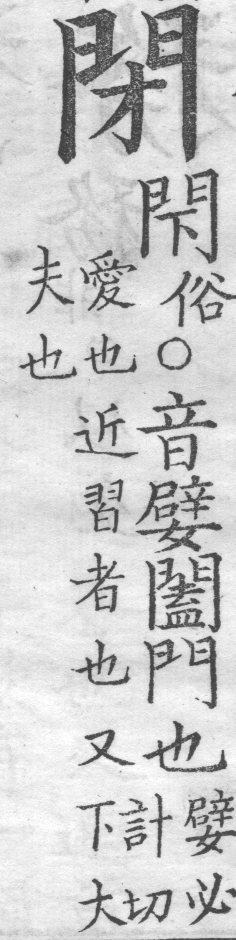 閉
閇俗○音嬖闔門也
嬖必
計切
愛也近習者也又下大
夫也